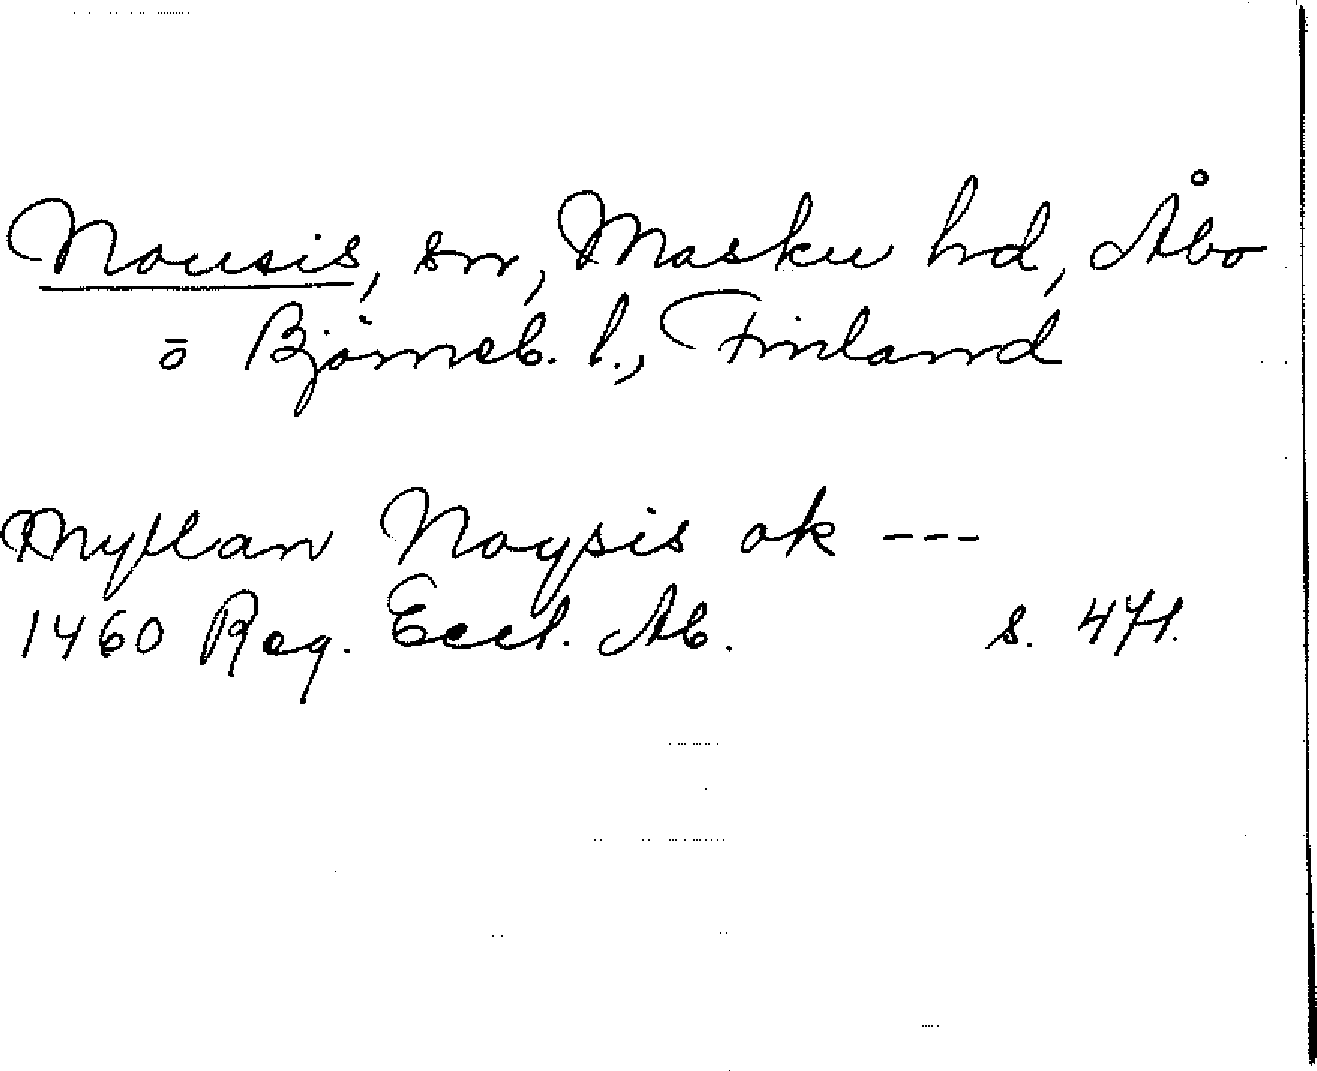 Nousis, sn, Masku hd, Åbo
o Björneb. l., Finland
Myllan Noysis ok ---
1460 Reg. Eccl. Ab. s. 471.